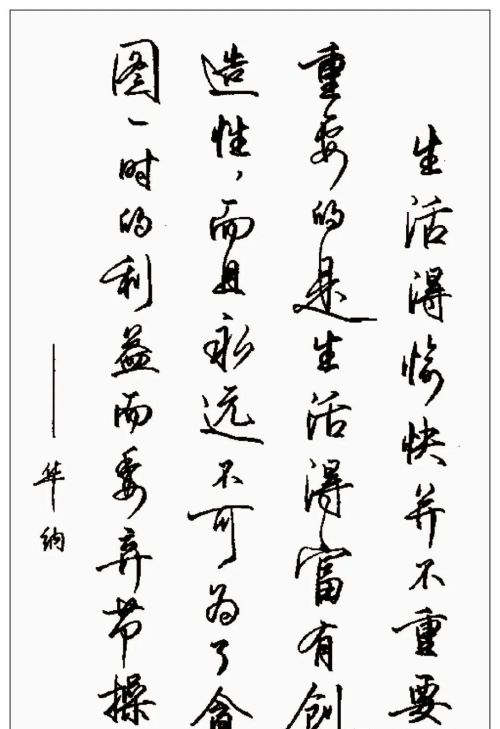 生活得愉快并不重要
重要的是生活得富有创
造性，而且永远不可为了贪
图一时的利益而委弃节操
——华纳